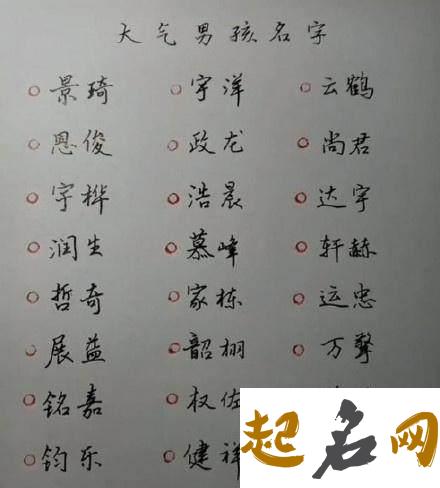 大气男孩名字
景琦 宇洋 云鹤
恩俊 政龙 尚君
宇桦 浩晨 达宇
润生 慕峰 轩赫
哲奇 家栋 运忠
展益 韶栩 万聲
铭嘉 权佐
钧乐 健祥
起名网